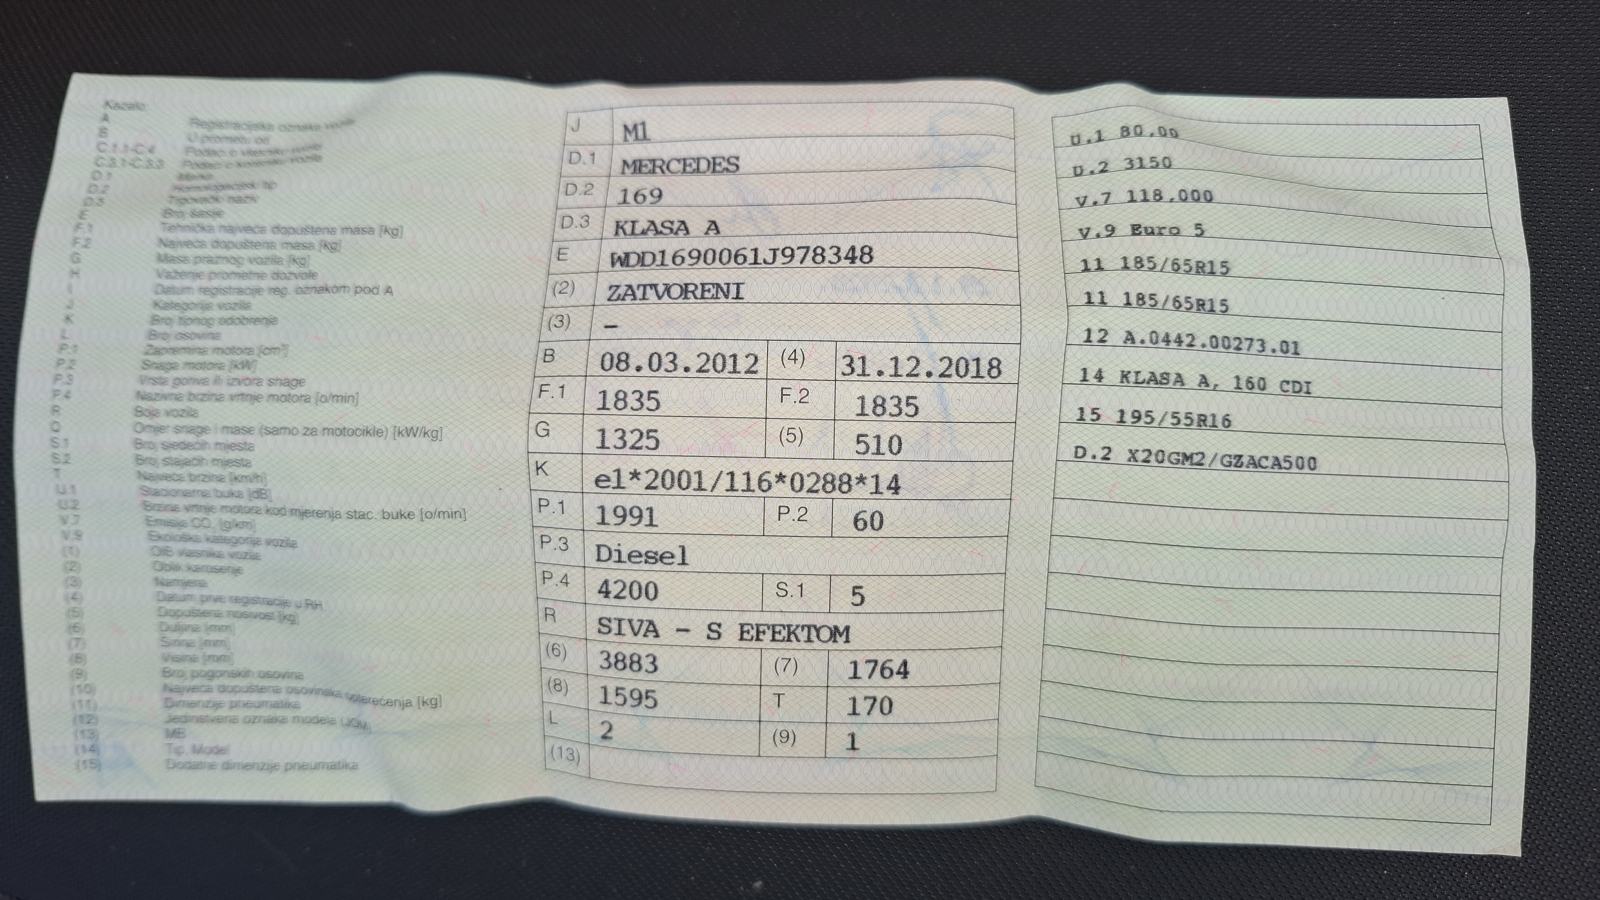 Kazalo:
A Registracijska oznaka vozila
B U prometu od
C.1.1-C.4 Podaci o vlasniku vozila
C.3.1-C.3.3 Podaci o korisniku vozila
D.1 Marka
D.2 Homologacijski tip
D.3 Trgovački naziv
E Broj šasije
F.1 Tehnička najveća dopuštena masa [kg]
F.2 Najveća dopuštena masa [kg]
G Masa praznog vozila [kg]
H Važenje prometne dozvole
I Datum registracije reg. oznakom pod A
J Kategorija vozila
K Broj tipnog odobrenja
L Broj osovina
P.1 Zapremina motora [cm³]
P.2 Snaga motora [kW]
P.3 Vrsta goriva ili izvora snage
P.4 Nazivna brzina vrtnje motora [o/min]
R Boja vozila
Q Omjer snage i mase (samo za motocikle) [kW/kg]
S.1 Broj sjedećih mjesta
S.2 Broj stajaćih mjesta
T Najveća brzina [km/h]
U.1 Stacionarna buka [dB]
U.2 Brzina vrtnje motora kod mjerenja stac. buke [o/min]
V.7 Emisija CO₂ [g/km]
V.9 Ekološka kategorija vozila
(1) OIB vlasnika vozila
(2) Oblik karoserije
(3) Namjena
(4) Datum prve registracije u RH
(5) Dopuštena nosivost [kg]
(6) Duljina [mm]
(7) Širina [mm]
(8) Visina [mm]
(9) Broj pogonskih osovina
(10) Najveća dopuštena osovinska opterećenja [kg]
(11) Dimenzije pneumatika
(12) Jedinstvena oznaka modela
(13) MB
(14) Tip, Model
(15) Dodatne dimenzije pneumatika
J M1
D.1 MERCEDES
D.2 169
D.3 KLASA A
E WDD1690061J978348
(2) ZATVORENI
(3) –
B 08.03.2012 (4) 31.12.2018
F.1 1835 F.2 1835
G 1325 (5) 510
K e1*2001/116*0288*14
P.1 1991 P.2 60
P.3 Diesel
P.4 4200 S.1 5
R SIVA – S EFEKTOM
(6) 3883 (7) 1764
(8) 1595 T 170
L 2 (9) 1
(13)
U.1 80,00
U.2 3150
V.7 118,000
V.9 Euro 5
11 185/65R15
11 185/65R15
12 A.0442.00273.01
14 KLASA A, 160 CDI
15 195/55R16
D.2 X20GM2/GZACA500